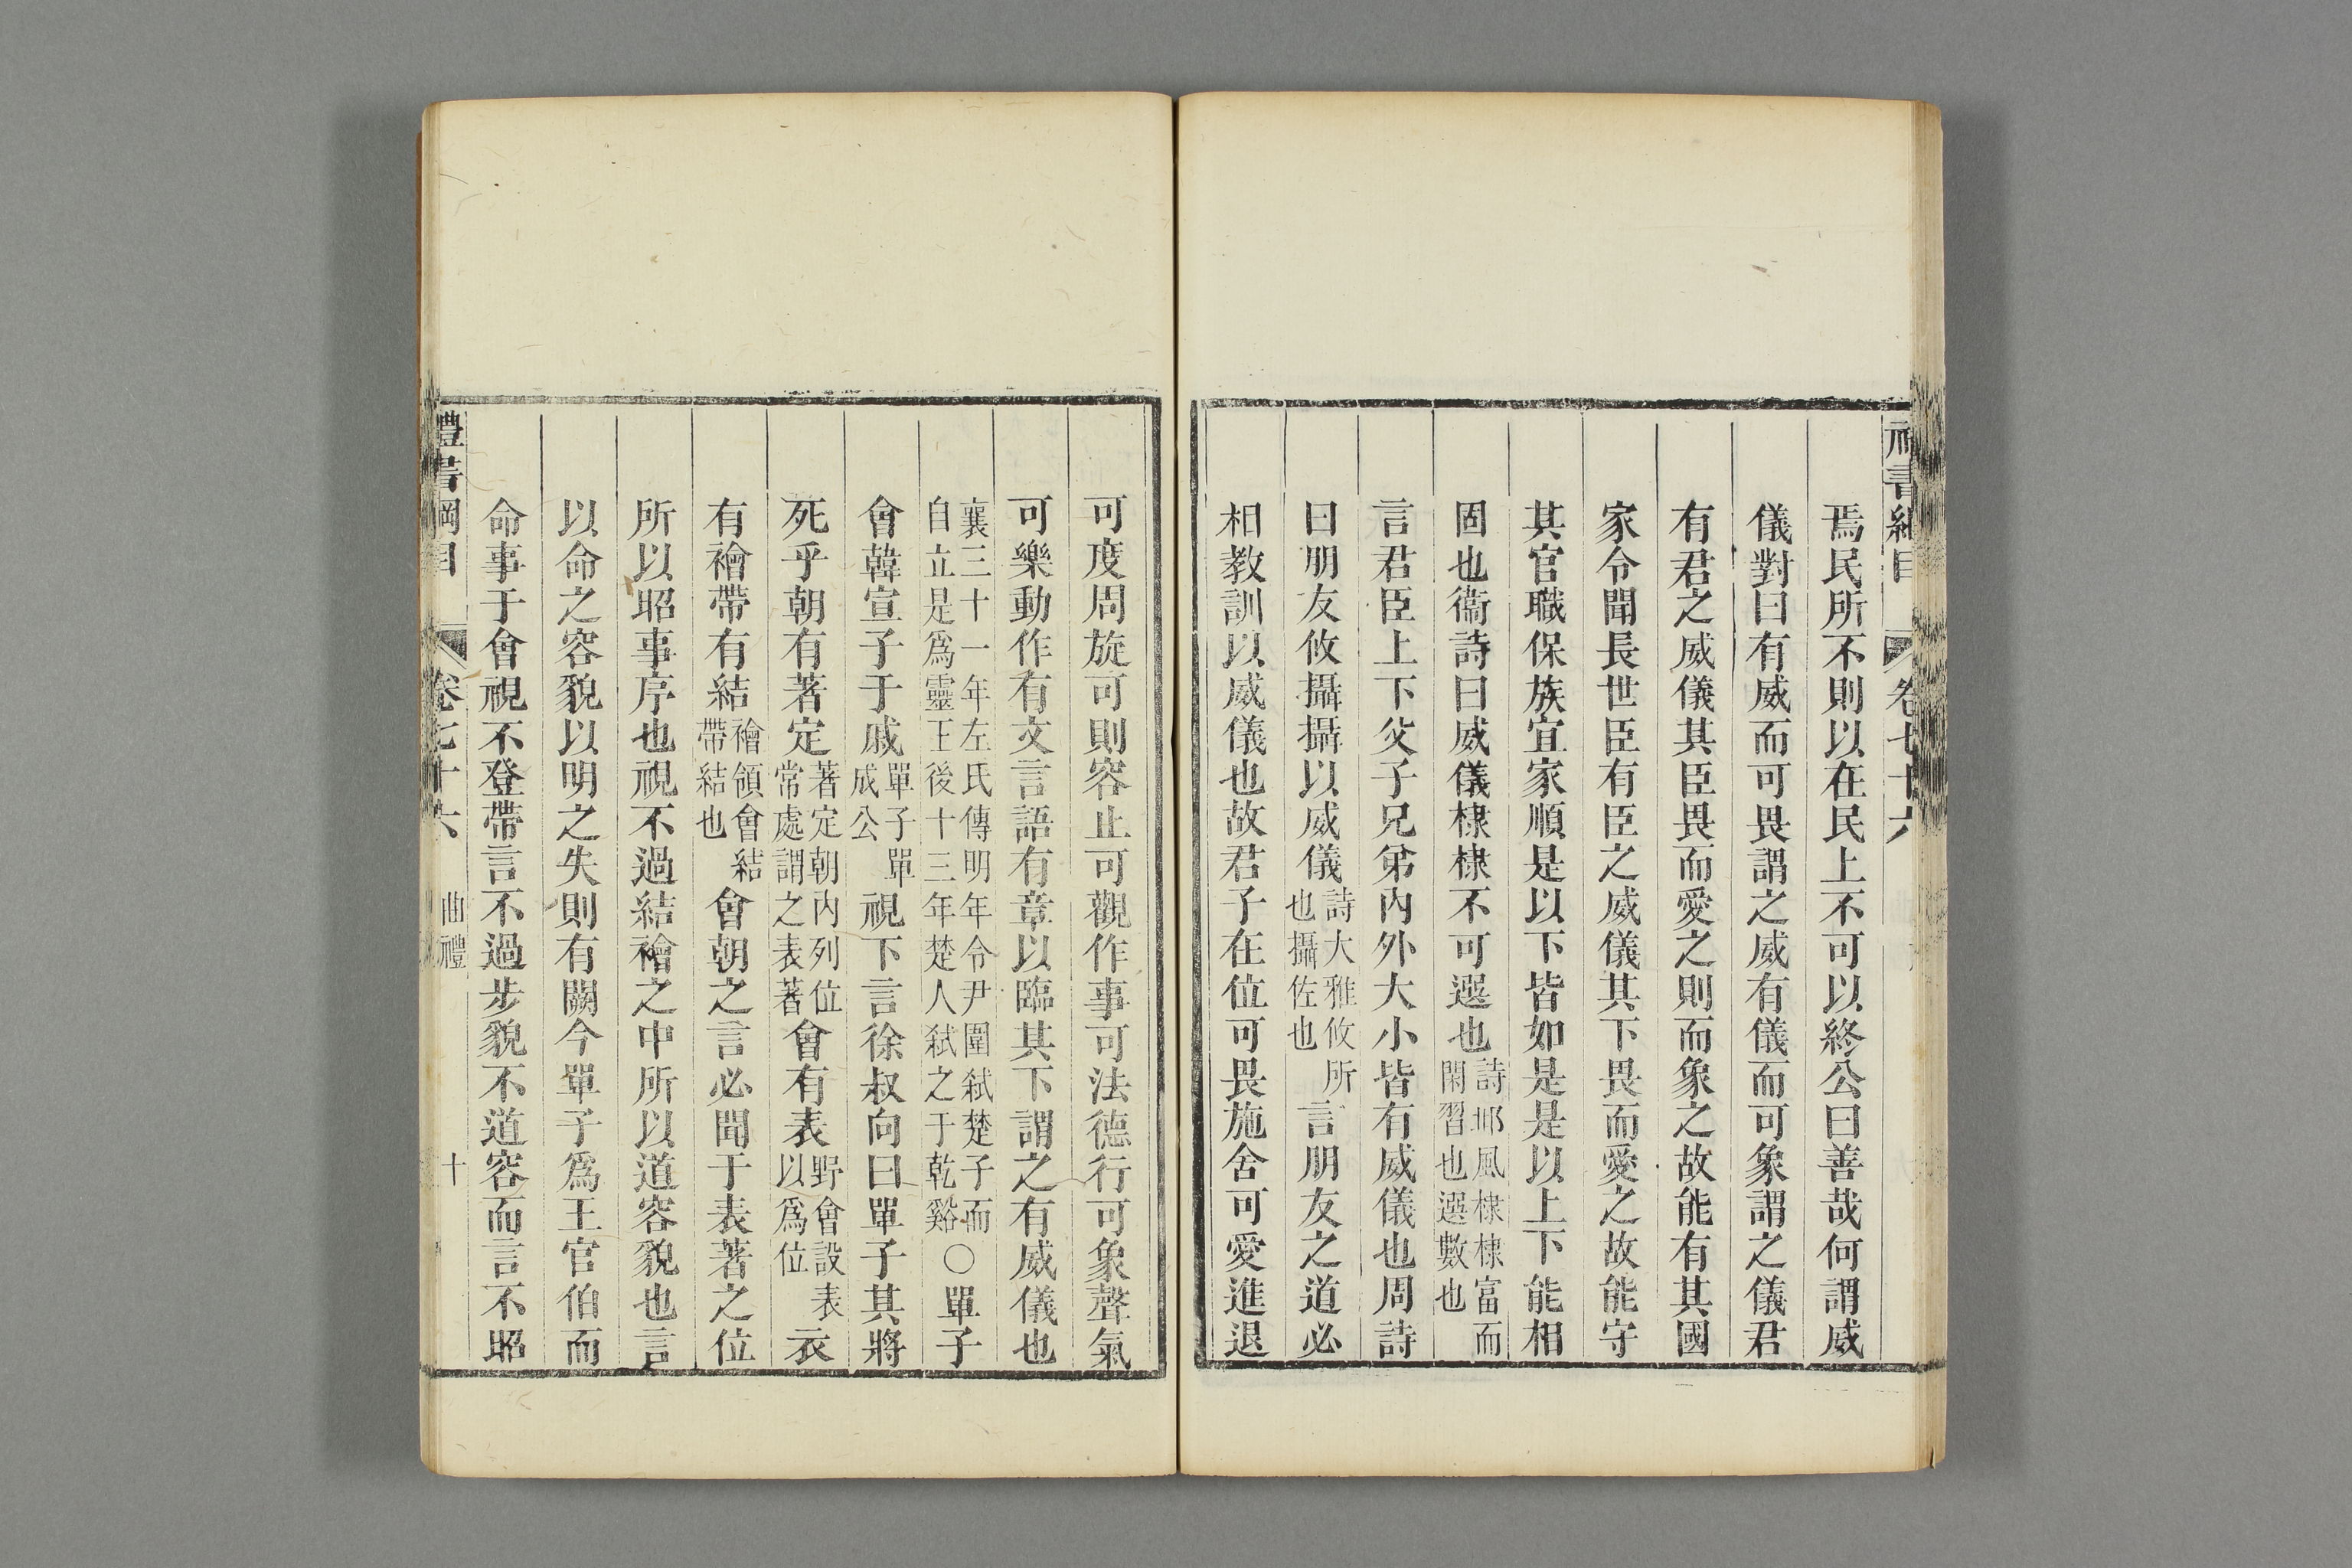 焉民所不則以在民上不可以終公曰善哉何謂威
儀對曰有威而可畏謂之威有儀而可象謂之儀君
有君之威儀其臣畏而愛之則而象之故能有其國
家令聞長世臣有臣之威儀其下畏而愛之故能守
其官職保族宜家順是以下皆如是是以上下能相
固也衞詩曰威儀棣棣不可選也詩邶風棣棣富而閑習也選數也
言君臣上下父子兄弟內外大小皆有威儀也周詩
曰朋友攸攝攝以威儀詩大雅攸所也攝佐也言朋友之道必
相教訓以威儀也故君子在位可畏施舍可愛進退
可度周旋可則容止可觀作事可法德行可象聲氣
可樂動作有文言語有章以臨其下謂之有威儀也
襄三十一年左氏傳明年令尹圍弒楚子而自立是爲靈王後十三年楚人弒之于乾谿○單子
會韓宣子于戚單子單成公視下言徐叔向曰單子其將
死乎朝有著定著定朝內列位常處謂之表著會有表野會設表以爲位衣
有襘帶有結襘領會結帶結也會朝之言必聞于表著之位
所以昭事序也視不過結襘之中所以道容貌也言
以命之容貌以明之失則有闕今單子爲王官伯而
命事于會視不登帶言不過步貌不道容而言不昭
禮書綱目 卷七十六 曲禮 十